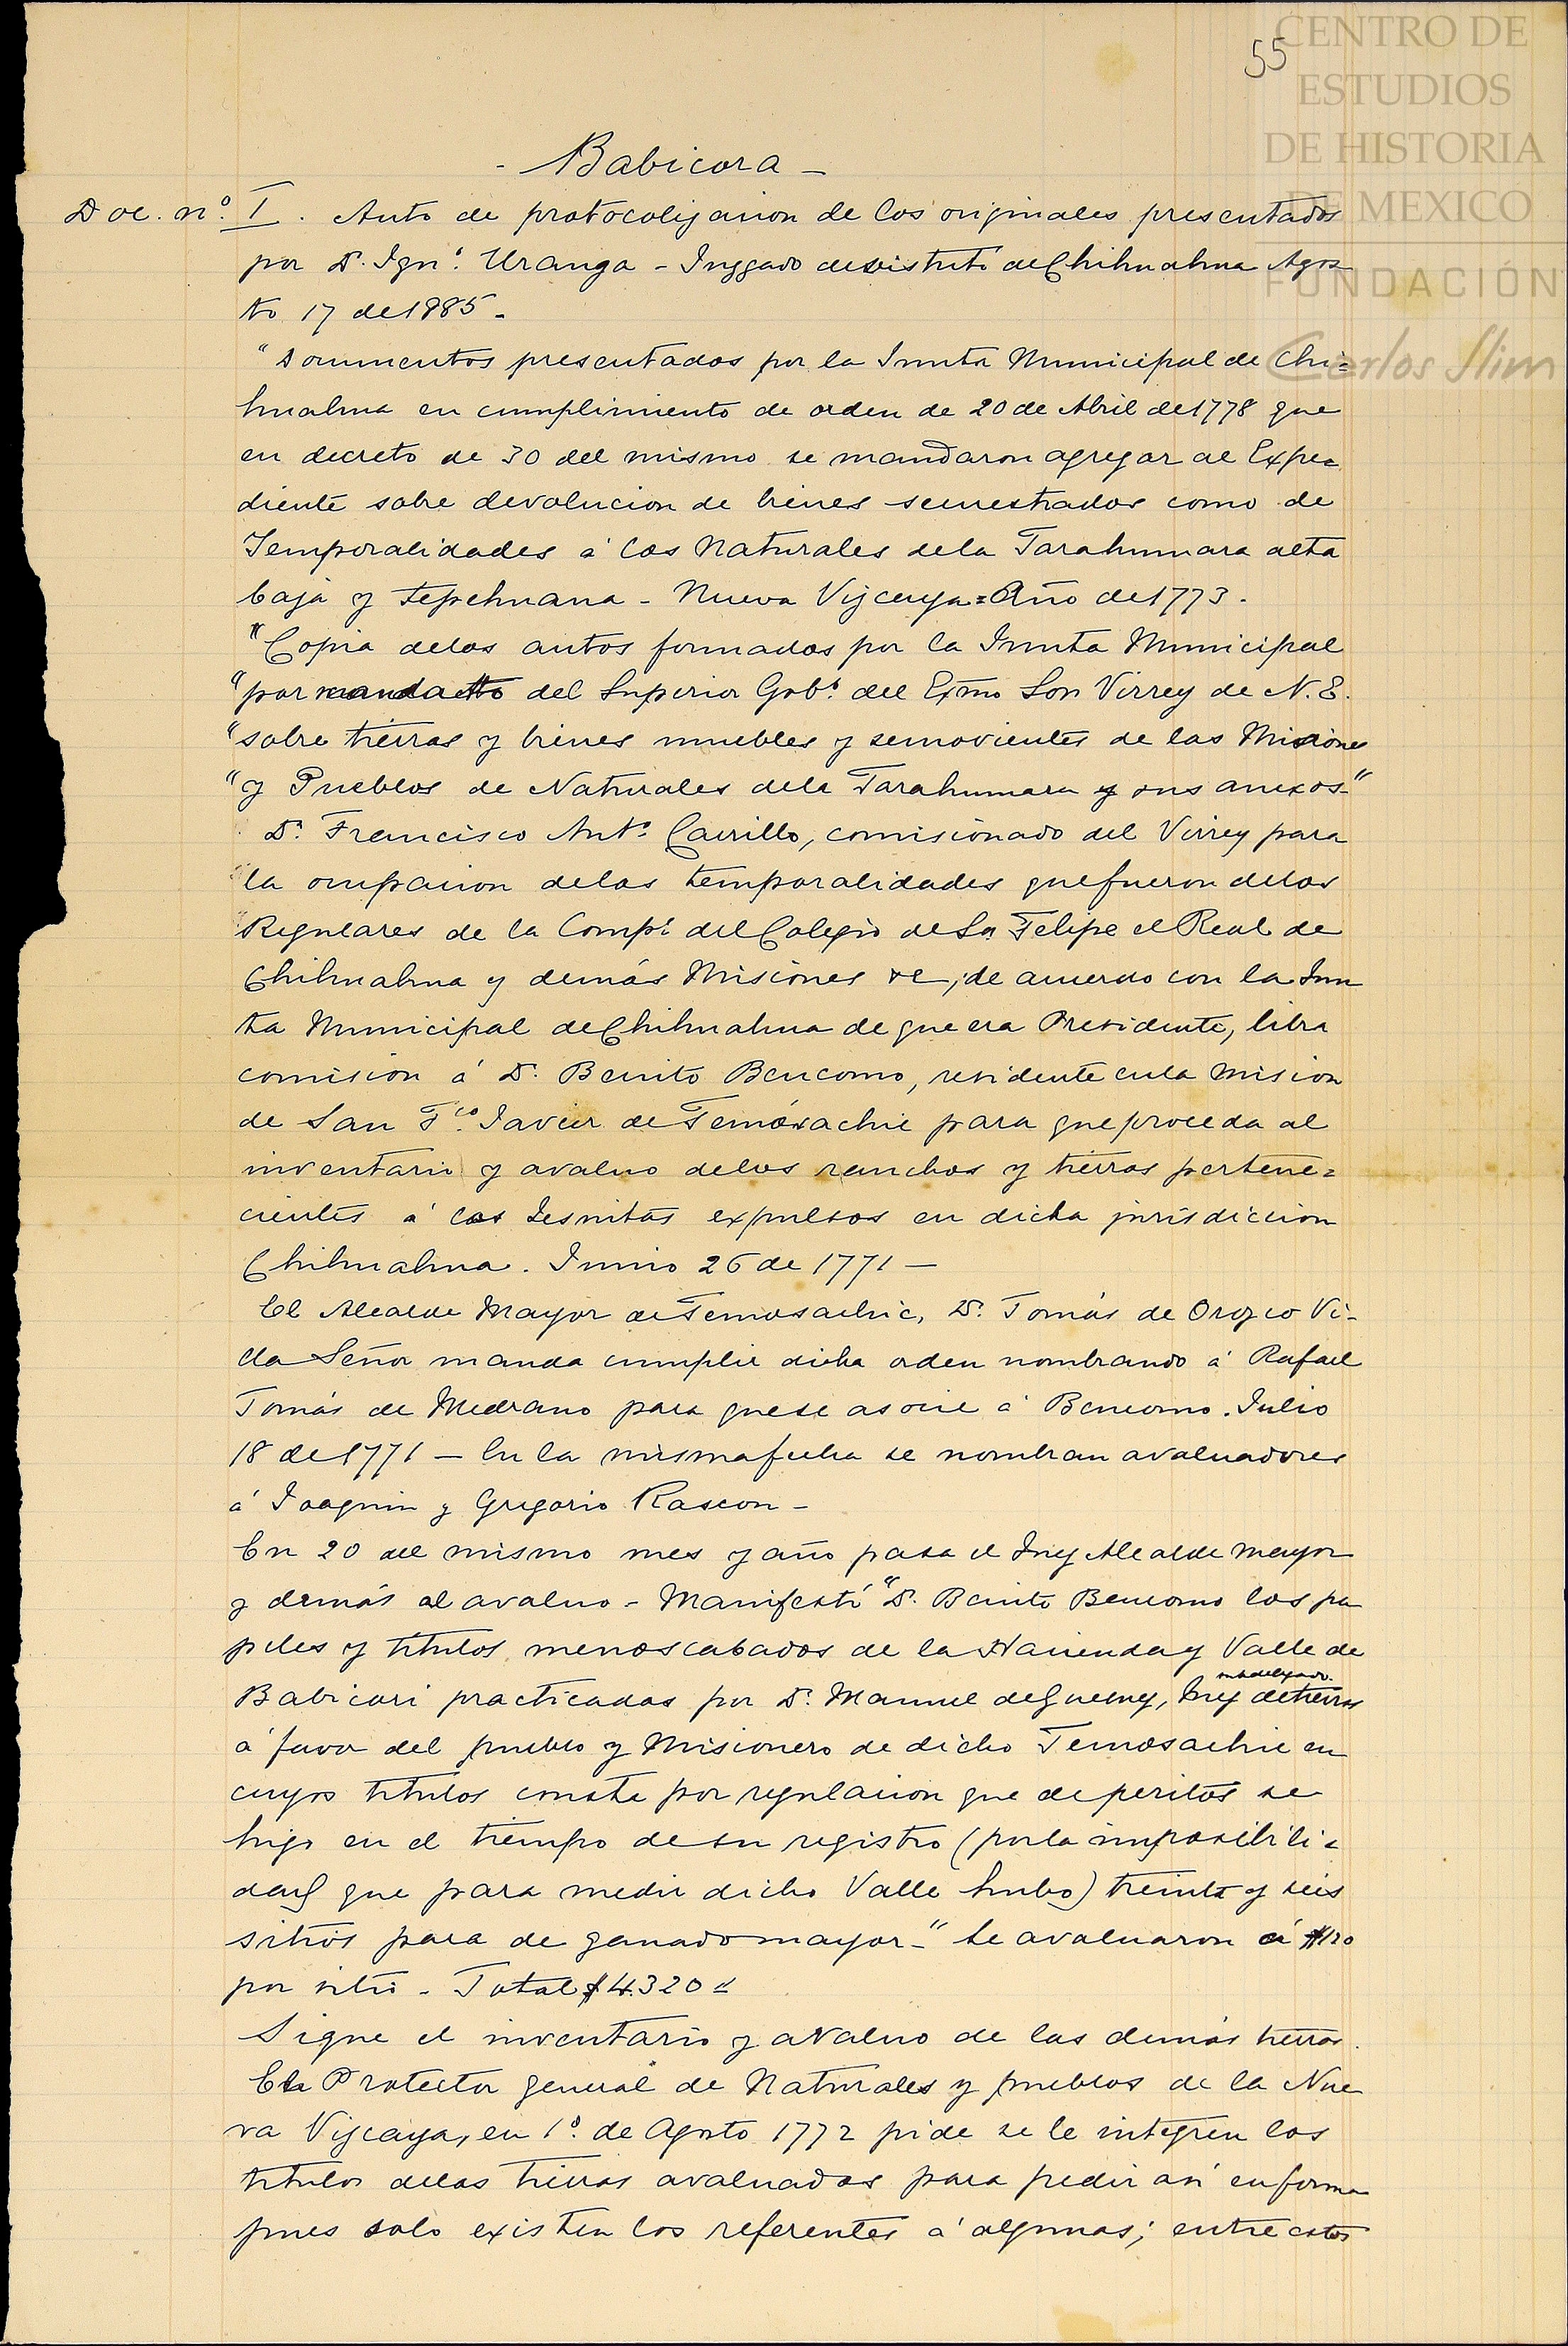 55
CENTRO DE
ESTUDIOS
DE HISTORIA
DE MEXICO
FUNDACIÓN
Carlos Slim
- Babicora -
Doc. nº I. Auto de protocolizacion de los originales presentados
por D. Ignº. Uranga - Juzgado de distrito de Chihuahua Agos
to 17 de 1885.
"Documentos presentados por la Junta Municipal de Chi=
huahua en cumplimiento de orden de 20 de Abril de 1778 que
en decreto de 30 del mismo se mandaron agregar al Expe=
diente sobre devolucion de bienes secuestrados como de
Temporalidades á los Naturales de la Tarahumara alta
baja y Tepehuana - Nueva Vizcaya = Año de 1773.
"Copia de los autos formados por la Junta Municipal
"por mandatto del Superior Gobº. del Exmo Sor Virrey de N. E.
"sobre tierras y bienes muebles y semovientes de las Misiones
"y Pueblos de Naturales de la Tarahumara y sus anexos."
D. Francisco Antº. Carrillo, comisionado del Virrey para
la ocupacion de las temporalidades que fueron de los
Regulares de la Compª del Colegio de Sn Felipe el Real de
Chihuahua y demás Misiones &c, de acuerdo con la Jun
ta Municipal de Chihuahua de que era Presidente, libra
comision á D. Benito Bencomo, residente en la Mision
de San Fco. Javier de Temósachic para que proceda al
inventario y avaluo de los ranchos y tierras pertene=
cientes á los Jesuitas expulsos en dicha jurisdiccion
Chihuahua. Junio 26 de 1771 -
El Alcalde Mayor de Temosachic, D. Tomás de Orozco Vi-
lla Señor manda cumplir dicha orden nombrando á Rafael
Tomás de Medrano para que se asocie á Bencomo. Julio
18 de 1771 - En la misma fecha se nombran avaluadores
á Joaquin y Gregorio Rascon -
En 20 del mismo mes y año pasa el Juez Alcalde mayor
y demás al avaluo - Manifestó "D. Benito Bencomo los pa
peles y títulos menoscabados de la Hacienda y Valle de
subdelegado.
Babicari practicadas por D. Manuel de Juez de tierras
á favor del pueblo y Misionero de dicho Temosachic en
cuyos titulos consta por regulacion que de peritos se
hizo en el tiempo de su registro (por la imposibili=
dad que para medir dicho Valle hubo) treinta y seis
sitios para de ganado mayor -" Se avaluaron á $120
por sitio - Total $4.320 "
Sigue el inventario y avaluo de las demás tierras.
El Protector general de Naturales y pueblos de la Nue
va Vizcaya, en 1º. de Agosto 1772 pide se le integren los
titulos de las tierras avaluadas para pedir así en forma
pues solo existen los referentes á algunas; entre estos